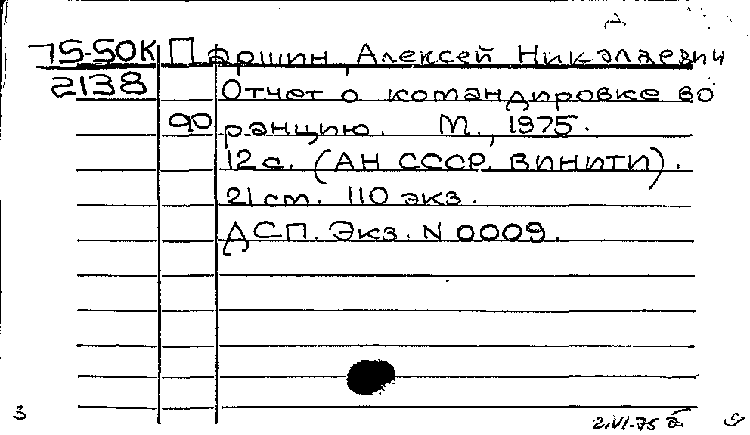 75-50К Паршин, Алексей Николаевич
2138 Отчет о командировке во
Францию. М., 1975.
12с. (АН СССР. ВИНИТИ).
21 см. 110 экз.
ДСП. Экз. N 0009.
3 2.VI-75